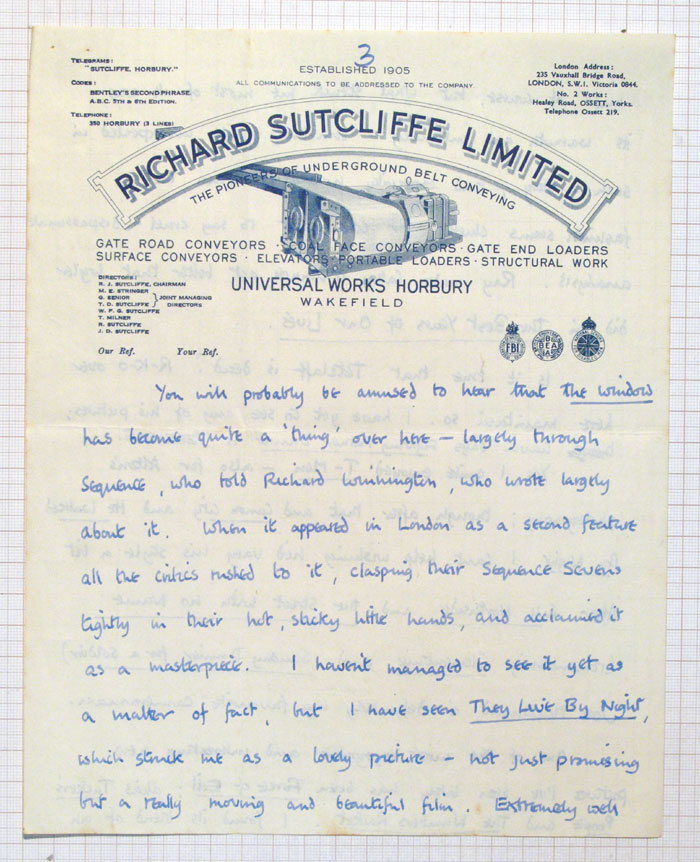 3
TELEGRAMS:
"SUTCLIFFE, HORBURY."
CODES:
BENTLEY'S SECOND PHRASE.
A.B.C. 5TH & 6TH EDITION.
TELEPHONE:
350 HORBURY (3 LINES)
ESTABLISHED 1905
ALL COMMUNICATIONS TO BE ADDRESSED TO THE COMPANY.
London Address:
235 Vauxhall Bridge Road,
LONDON, S.W.1. Victoria 0844.
No. 2 Works:
Healey Road, OSSETT, Yorks.
Telephone Ossett 219.
RICHARD SUTCLIFFE LIMITED
THE PIONEERS OF UNDERGROUND BELT CONVEYING
GATE ROAD CONVEYORS · COAL FACE CONVEYORS · GATE END LOADERS
SURFACE CONVEYORS · ELEVATORS · PORTABLE LOADERS · STRUCTURAL WORK
DIRECTORS:
R. J. SUTCLIFFE, CHAIRMAN
M. E. STRINGER
G. SENIOR
T. D. SUTCLIFFE
JOINT MANAGING
DIRECTORS
W. F. G. SUTCLIFFE
T. MILNER
R. SUTCLIFFE
J. D. SUTCLIFFE
UNIVERSAL WORKS HORBURY
WAKEFIELD
Our Ref. Your Ref.
FBI
BEA
You will probably be amused to hear that The Window
has become quite a 'thing' over here – largely through
Sequence, who told Richard Winnington, who wrote largely
about it. When it appeared in London as a second feature
all the critics rushed to it, clasping their Sequence Sevens
tightly in their hot, sticky little hands, and acclaimed it
as a masterpiece. I haven't managed to see it yet as
a matter of fact, but I have seen They Live By Night,
which struck me as a lovely picture – not just promising
but a really moving and beautiful film. Extremely well